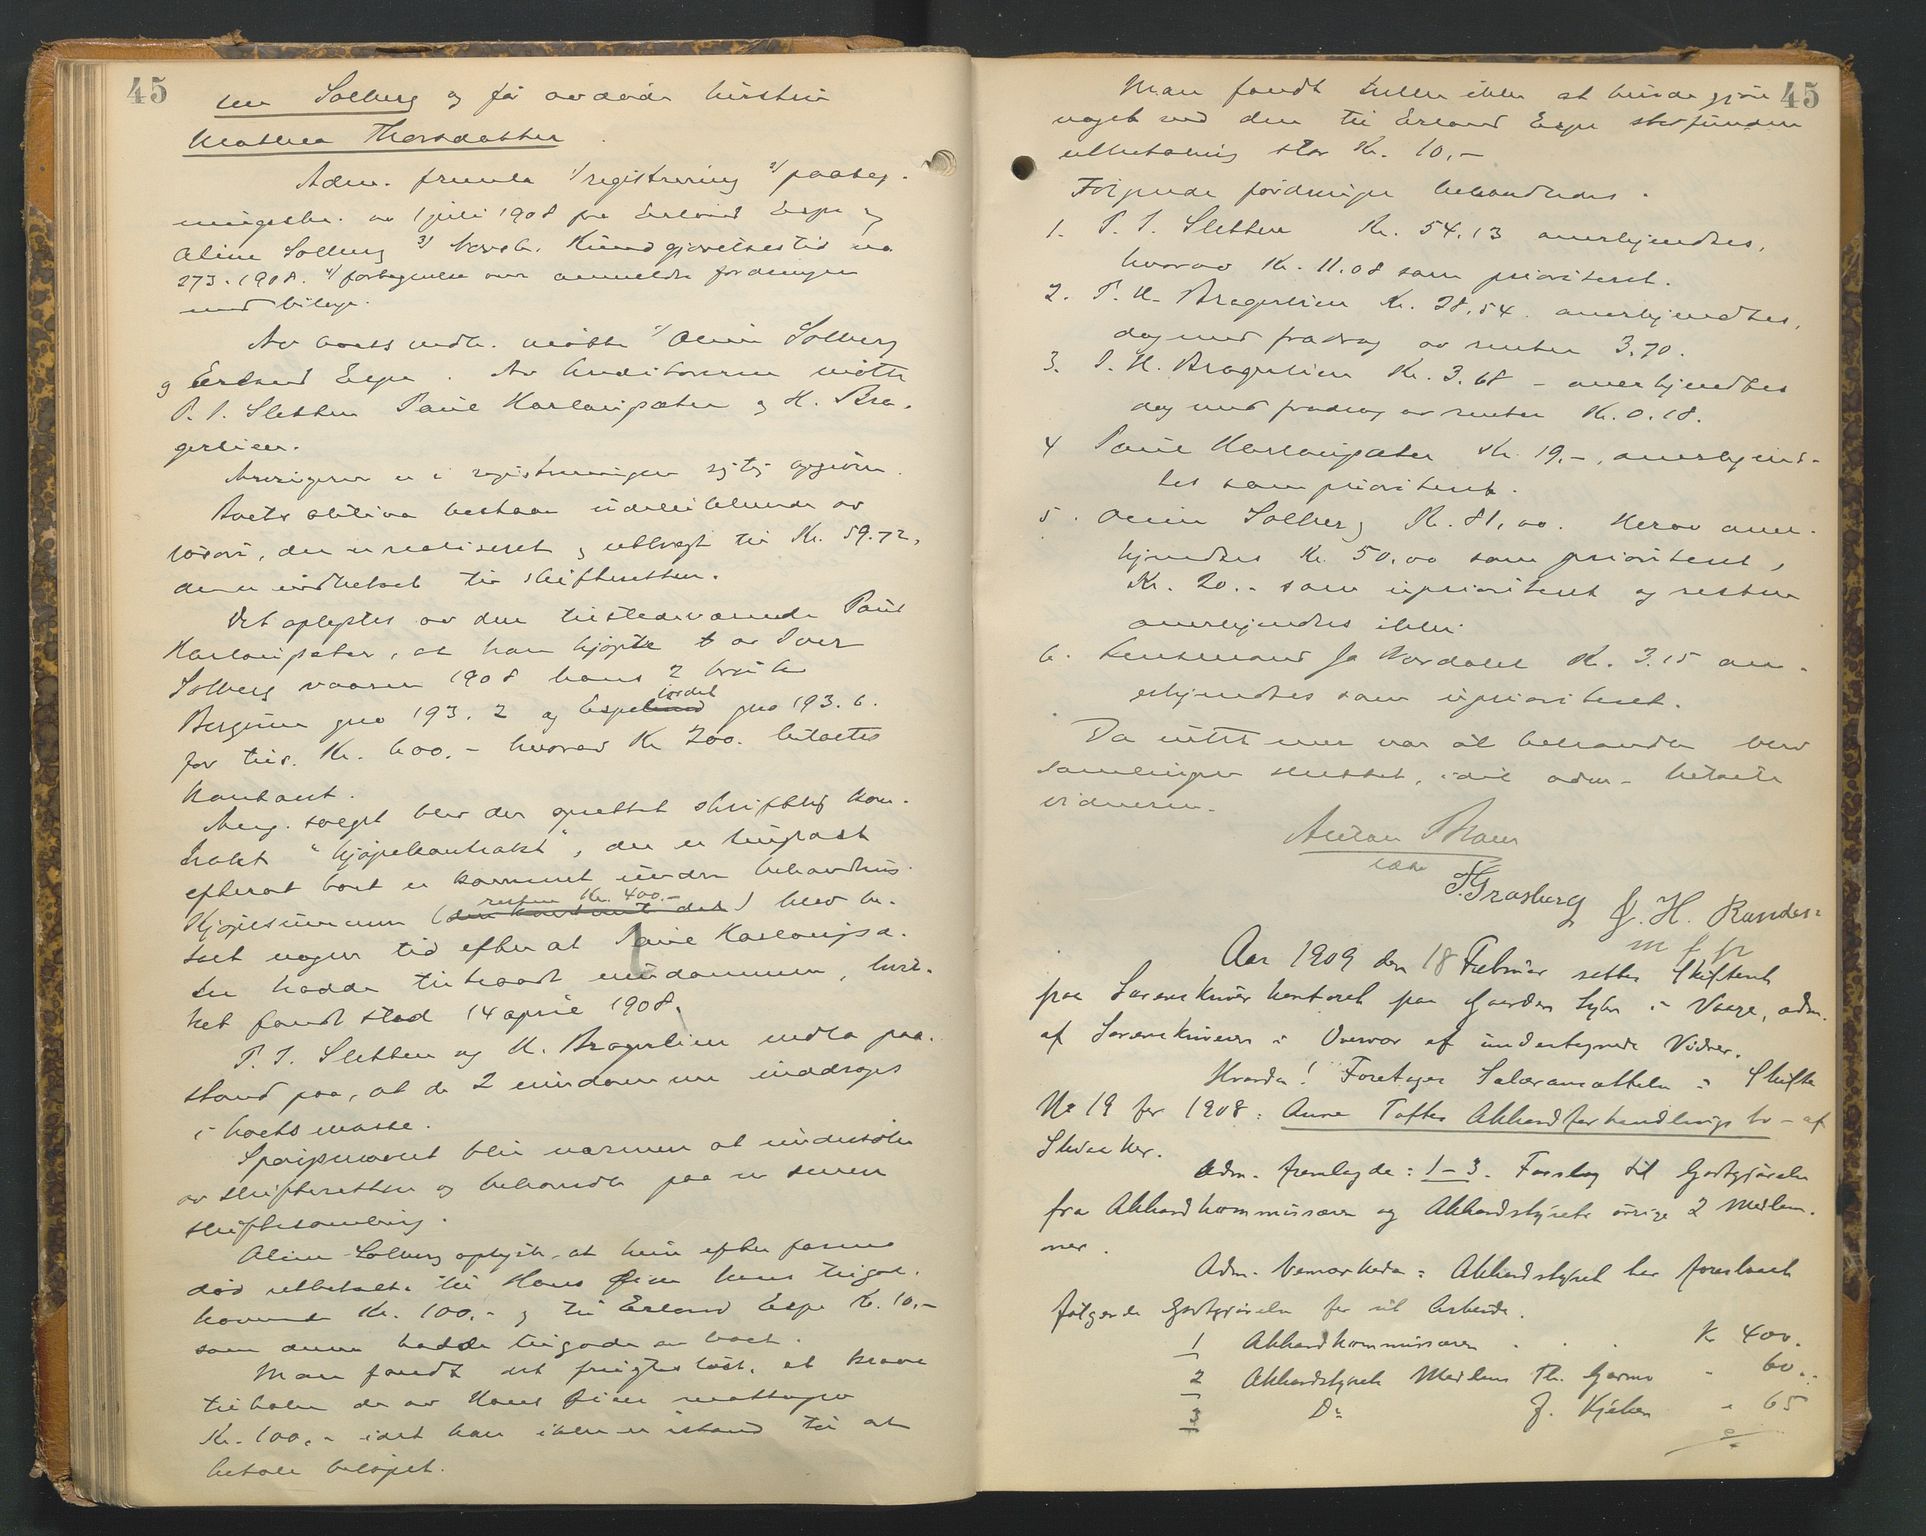 45
sen Solberg og før avdøde hustru
Mathea Thorsdatter.
Adm. fremla 1/ registrering 2/ paateg-
ningsskr. av 1 juli 1908 fra Erland Espe og
Aline Solberg 3/ Norsk Kundgjørelsestid no
273. 1908. 4/ fortegnelse over anmeldte fordringer
med bilage.
Av boets vedk. møtte 1/ Aline Solberg
og Erland Espe. Av kreditorerne møtte
P. I. Sletten Paul Harlaugsæter og H. Bra-
gerlien.
Arvingerne er i registreringen rigtig opgivne.
Boets aktiva bestaar udelukkende av
løsøre, der er realiseret og utbragt til Kr. 59.72,
der er indbetalt til skifteretten.
Det oplystes av den tilstedeværende Paul
Harlaugsæter, at han kjøpte av Iver
Solberg vaaren 1908 hans 2 bruk
Bergum gno 193. 2 og Espejordet gno 193. 6.
for tils. Kr. 600.- hvorav Kr 200. betaltes
kontant.
Ang. salget blev der oprettet skriftlig kon-
trakt "kjøpekontrakt", der er tinglæst
efterat boet er kommet under behandling.
Kjøpesummen (resten Kr. 400.-) blev be-
talt nogen tid efter at Paul Harlaugsæ-
ter hadde tiltraadt eiendommen, hvil-
ket fandt sted 14 april 1908.
P. I. Sletten og H. Bragerlien nedla paa-
stand paa, at de 2 eiendomme inddrages
i boets masse.
Spørgsmaalet blir nærmere at undersøke
av skifteretten og behandle paa en senere
skiftesamling.
Aline Solberg oplyste at hun efter farens
død utbetalte til Hans Øien hans tilgode-
havende Kr. 100.- og til Erland Espe Kr. 10.-
som denne hadde tilgode av boet.
Man fandt det frugtesløst, at kræve
tilbake de av Hans Øien mottagne
Kr. 100.- idet han ikke er istand til at
betale beløpet.
45
Man fandt heller ikke at kunde gjøre
noget med den til Erland Espe stedfundne
utbetaling stor Kr. 10.-
Følgende fordringer behandledes.
1. P. I. Sletten Kr. 54.13 anerkjendtes,
hvorav Kr. 11.08 som prioriteret.
2. P. H. Bragerlien Kr. 28.54. anerkjendtes,
dog med fradrag av renter 3.70.
3. I. H. Bragerlien Kr. 3.68 - anerkjendtes
dog med fradrag av renter Kr. 0.18.
4 Paul Harlaugsæter Kr. 19.-, anerkjend-
tes som prioriteret.
5. Aline Solberg Kr. 81.00. Herav aner-
kjendtes Kr. 50.00 som prioriteret,
Kr. 20.- som uprioriteret og resten
anerkjendtes ikke.
6. Lensmand Jo Nordalet Kr. 3.15 an-
erkjendtes som uprioriteret.
Da intet mer var at behandle blev
samlingen sluttet, idet adm. betalte
vidnerne.
T. Grasberg J. H. Randen
m f p
Aar 1909 den 18 Februar sattes Skifteret
paa Sorenskriverkontoret paa Gaarden Sylte i Vaage, adm.
af Sorenskriveren i Overvær af undertegnede Vidner.
Hvorda! Foretages Salæransættelse i Skifte
No 19 for 1908: Anne Toftes Akkordforhandlings bo - af
Skiaaker.
Adm. fremlagde: 1-3. Forslag til Godtgjørelse
fra Akkordkommissæren og Akkordstyrets øvrige 2 Medlem-
mer.
Adm. bemærkede: Akkordstyret har foreslaaet
følgende Godtgjørelse for sit Arbeide.
1 Akkordkommissæren . . . Kr 400.
2 Akkordstyrets Medlem Th. Garmo " 60..
3 Do J. Kjæken " 65